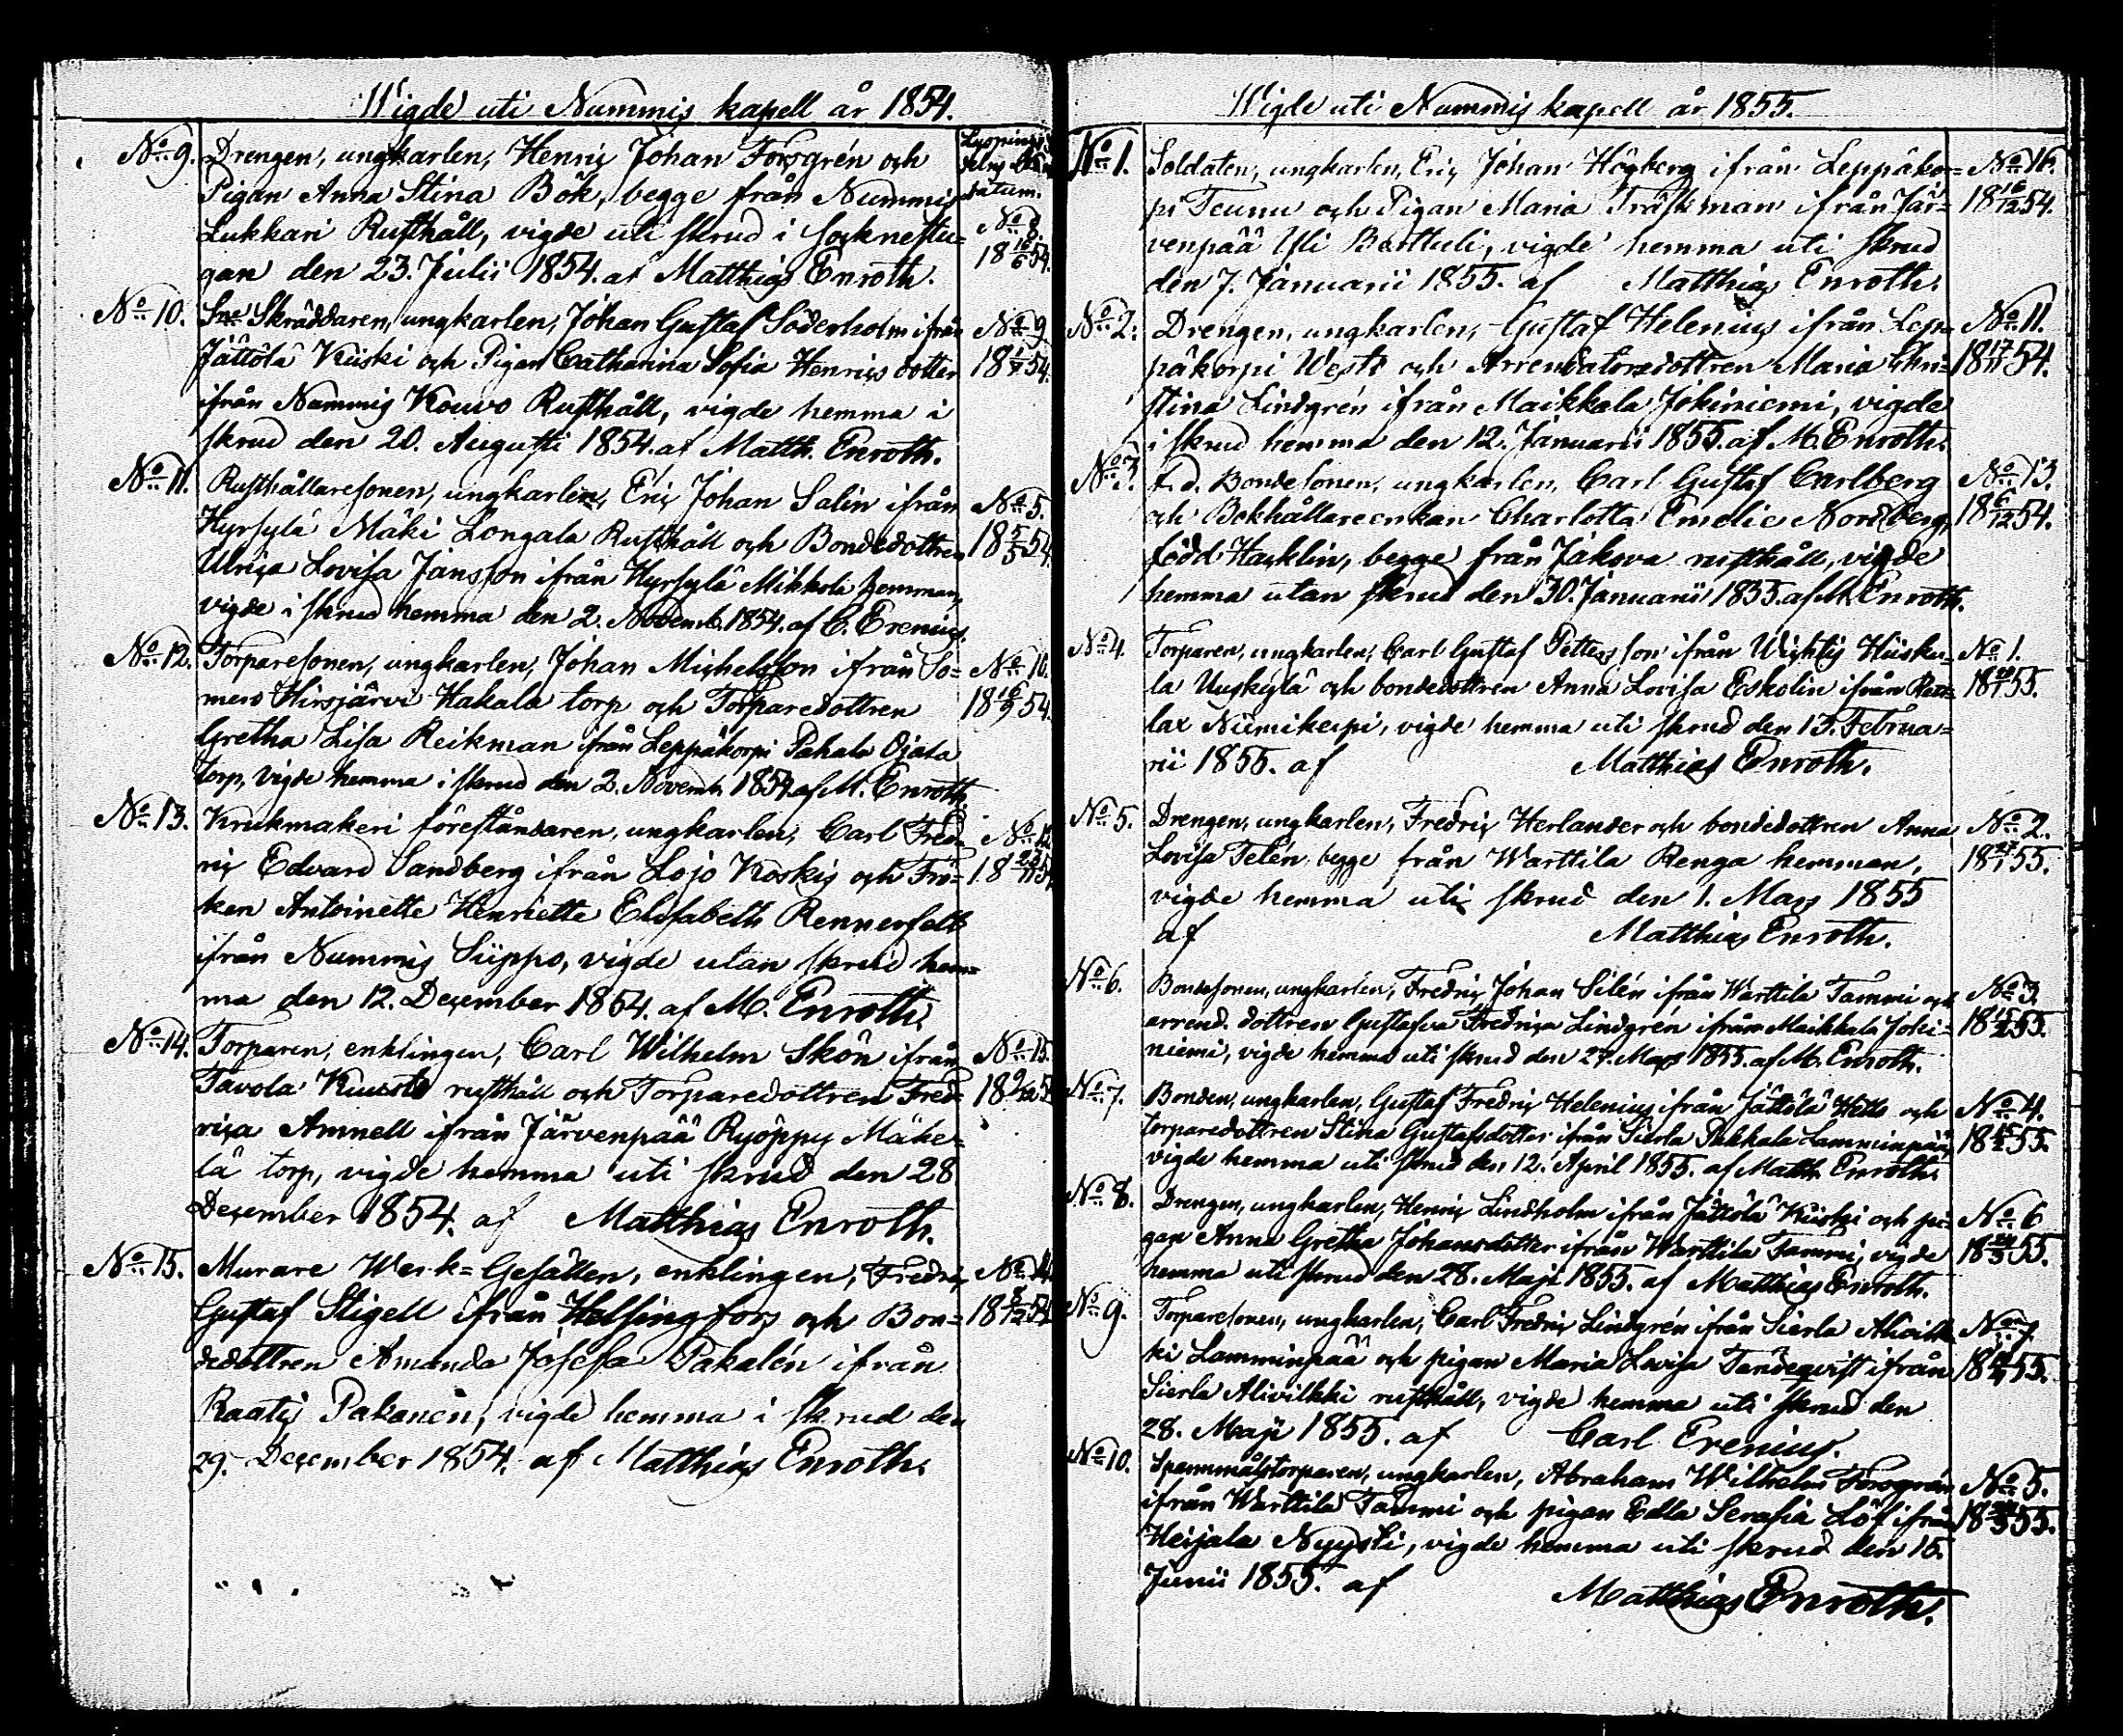 Wigde uti Nummis kapell år 1854.
Lysnings
datum.
No 9. Drengen, ungkarlen, Henric Johan Forsgrén och
Pigan Anna Stina Bök, begge från Nummis
Lukkari Rusthåll, vigde uti skrud i Socknestu-
gan den 23. Julii 1854. af Matthias Enroth.
No 8.
No 10. Skräddaren, ungkarlen, Johan Gustaf Söderholm ifrån
Jättölä Kiiski och Pigan Catharina Sofia Henricsdotter
ifrån Nummis Kouvo Rusthåll, vigde hemma i
skrud den 20. Augusti 1854. af Matth. Enroth.
No 9
18 1/7 54.
No 11. Rusthållaresonen, ungkarlen, Eric Johan Salin ifrån
Hyrsylä Mäki Longala Rusthåll och Bondedottren
Ulrica Lovisa Jansson ifrån Hyrsylä Mikkola hemman,
vigde i skrud hemma den 2. Novemb. 1854. af C. Erenius.
No 5.
18 5/5 54
No 12. Torparesonen, ungkarlen, Johan Michelsson ifrån So-
mero Hirsjärvi Hakala torp och Torparedottren
Gretha Lisa Reikman ifrån Leppäkorpi Pahala Ojala
torp, vigde hemma i skrud den 2. Novemb. 1854. af M. Enroth.
No 10.
18 16/9 54.
No 13. Krukmakeri föreståndaren, ungkarlen, Carl Fred-
ric Edvard Sandberg ifrån Lojo Koskis och Frö-
ken Antoinette Henriette Elisabeth Rennerfelt
ifrån Nummis Siippo, vigde utan skrud hem-
ma den 12. December 1854. af M. Enroth.
No 14. Torparen, enklingen, Carl Wilhelm Skön ifrån
Tavola Kuusto rusthåll och Torparedottren Fred-
rica Amnell ifrån Järvenpää Ryöppy Mäke-
lä torp, vigde hemma uti skrud den 28
December 1854. af Matthias Enroth.
No 15.
No 15. Murare Werk-Gesällen, enklingen, Fredric
Gustaf Stigell ifrån Helsingfors och Bon-
dedottren Amanda Josefa Pakalén ifrån
Raatis Pakanen, vigde hemma i skrud den
29. December 1854. af Matthias Enroth.
No 14.
Wigde uti Nummis kapell år 1855.
No 1. Soldaten, ungkarlen, Eric Johan Högberg ifrån Leppäkor-
pi Teunu och Pigan Maria Träskman ifrån Jär-
venpää Yli Berttuli, vigde hemma uti skrud
den 7. Januarii 1855. af Matthias Enroth.
No 16.
18 16/12 54.
No 2. Drengen, ungkarlen, Gustaf Helenius ifrån Lep-
päkorpi Westi och Arrendatorsdottren Maria Chri-
stina Lindgrén ifrån Maikkala Jokiniemi, vigde
i skrud hemma den 12. Januarii 1855. af M. Enroth.
No 11.
18 17/11 54.
No 3. F. d. Bondesonen, ungkarlen, Carl Gustaf Carlberg
och Bokhållareenkan Charlotta Emelie Nordberg,
född Hacklin, begge från Jakova rusthåll, vigde
hemma utan skrud den 30. Januarii 1855. af M. Enroth.
No 13.
18 6/12 54.
No 4. Torparen, ungkarlen, Carl Gustaf Pettersson ifrån Wichtis Hiisku-
la Uuskylä och bondedottren Anna Lovisa Eskolin ifrån
Niemikerpi, vigde hemma uti skrud den 13. Februa-
rii 1855. af Matthias Enroth.
No 1.
No 5. Drengen, ungkarlen, Fredric Herlander och bondedottren Anna
Lovisa Telén begge från Warttila Renga hemman,
vigde hemma uti skrud den 1. Mars 1855
af Matthias Enroth.
No 2.
18 27/1 55.
No 6. Bondesonen, ungkarlen, Fredric Johan Silén ifrån Warttila Tammi och
arrend. dottren Gustafva Fredrica Lindgrén ifrån Maikkala Joki-
niemi, vigde hemma uti skrud den 27. Mars 1855. af M. Enroth.
No 3.
No 7. Bonden, ungkarlen, Gustaf Fredric Helenius ifrån Jättölä Heto och
torparedottren Stina Gustafsdotter ifrån Sierla Pakkala Lamminpää,
vigde hemma uti skrud den 12. April 1855. af Matth. Enroth.
No 4.
No 8. Drengen, ungkarlen, Henric Lindholm ifrån Jättölä Kiiski och pi-
gan Anna Gretha Johansdotter ifrån Warttila Tammi, vigde
hemma uti skrud den 28. Maji 1855. af Matthias Enroth.
No 6
No 9. Torparesonen, ungkarlen, Carl Fredric Lindgrén ifrån Sierla Alivilk-
ki Lamminpää och pigan Maria Lovisa Tandeqvist ifrån
Sierla Alivilkki rusthåll, vigde hemma uti skrud den
28. Maji 1855. af Carl Erenius.
No 7.
No 10. Spannmålstorparen, ungkarlen, Abraham Wilhelm Forsgrén
ifrån Warttila Tammi och pigan Edla Serafia Löf ifrån
Heijala Nyysti, vigde hemma uti skrud den 15.
Junii 1855. af Matthias Enroth.
No 5.